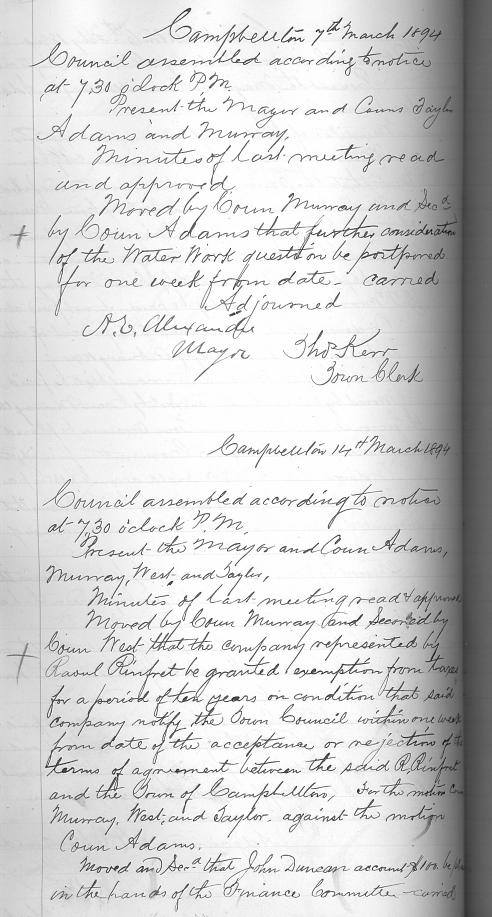 Campbellton 7th March 1894
Council assembled according to notice
at 7,30 o'clock P.M.
Present the Mayor and Couns Taylor
Adams and Murray.
Minutes of last meeting read
and approved
Moved by Coun Murray and Secd
by Coun Adams that further consideration
of the Water Work question be postponed
for one week from date - carried
Adjourned
A.E. Alexander
Mayor Thos Kerr
Town Clerk
Campbellton 14th March 1894
Council assembled according to notice
at 7,30 o'clock P.M.
Present the Mayor and Coun Adams,
Murray, West, and Taylor,
Minutes of last meeting read & approved
Moved by Coun Murray and Seconded by
Coun West that the company represented by
Raoul Rinfret be granted exemption from taxes
for a period of ten years on condition that said
company notify the Town Council within one week
from date of the acceptance or rejection of the
terms of agreement between the said R. Rinfret
and the Town of Campbellton, For the motion Coun
Murray, West, and Taylor. against the motion
Coun Adams.
Moved and Secd that John Duncan account $1.00 be
in the hands of the Finance Committee - carried